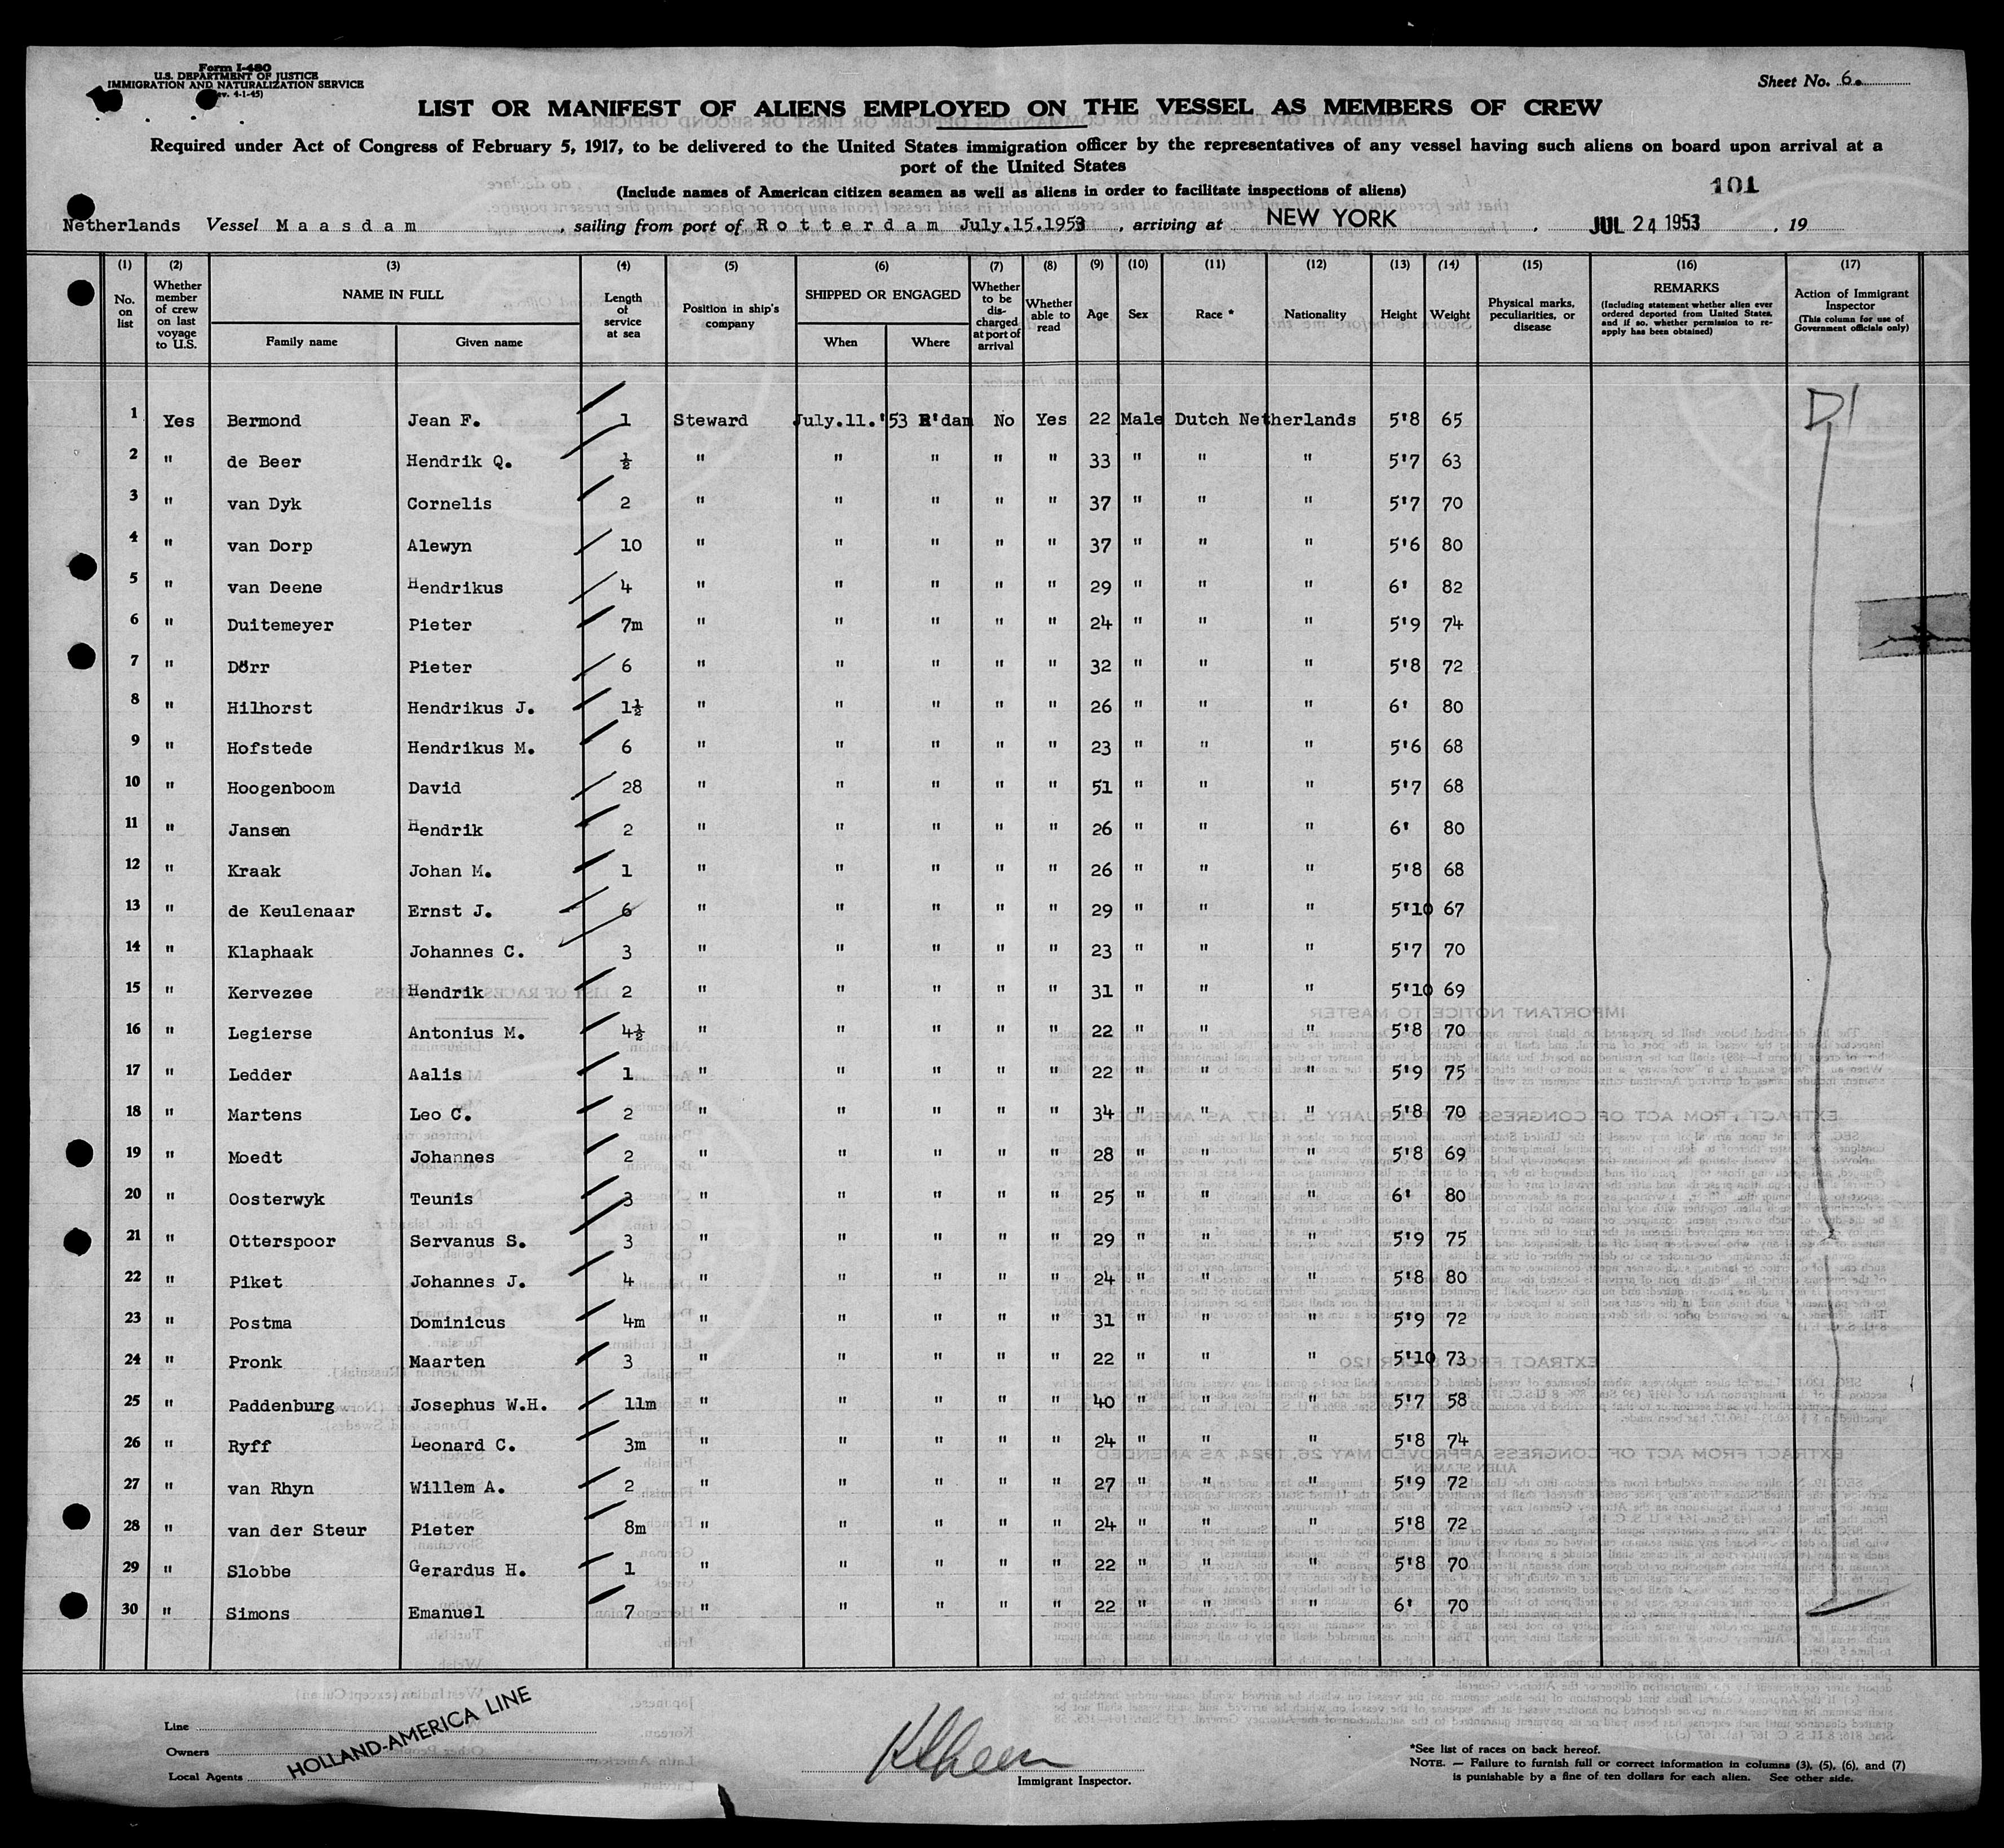 Form I-480
U.S. DEPARTMENT OF JUSTICE
IMMIGRATION AND NATURALIZATION SERVICE
(Rev. 4-1-45)
Sheet No. 6.
LIST OR MANIFEST OF ALIENS EMPLOYED ON THE VESSEL AS MEMBERS OF CREW
Required under Act of Congress of February 5, 1917, to be delivered to the United States immigration officer by the representatives of any vessel having such aliens on board upon arrival at a
port of the United States
(Include names of American citizen seamen as well as aliens in order to facilitate inspections of aliens)
101
Netherlands Vessel Maasdam, sailing from port of Rotterdam July.15.1953, arriving at NEW YORK, JUL 24 1953, 19
(1) (2) (3) (4) (5) (6) (7) (8) (9) (10) (11) (12) (13) (14) (15) (16) (17)
No. on list | Whether member of crew on last voyage to U.S. | NAME IN FULL Family name Given name | Length of service at sea | Position in ship's company | SHIPPED OR ENGAGED When Where | Whether to be discharged at port of arrival | Whether able to read | Age | Sex | Race * | Nationality | Height | Weight | Physical marks, peculiarities, or disease | REMARKS (Including statement whether alien ever ordered deported from United States, and if so, whether permission to re-apply has been obtained) | Action of Immigrant Inspector (This column for use of Government officials only)
1 Yes Bermond Jean F. 1 Steward July.11.'53 R'dam No Yes 22 Male Dutch Netherlands 5'8 65
2 " de Beer Hendrik Q. ½ " " " " " 33 " " " 5'7 63
3 " van Dyk Cornelis 2 " " " " " 37 " " " 5'7 70
4 " van Dorp Alewyn 10 " " " " " 37 " " " 5'6 80
5 " van Deene Hendrikus 4 " " " " " 29 " " " 6' 82
6 " Duitemeyer Pieter 7m " " " " " 24 " " " 5'9 74
7 " Dörr Pieter 6 " " " " " 32 " " " 5'8 72
8 " Hilhorst Hendrikus J. 1½ " " " " " 26 " " " 6' 80
9 " Hofstede Hendrikus M. 6 " " " " " 23 " " " 5'6 68
10 " Hoogenboom David 28 " " " " " 51 " " " 5'7 68
11 " Jansen Hendrik 2 " " " " " 26 " " " 6' 80
12 " Kraak Johan M. 1 " " " " " 26 " " " 5'8 68
13 " de Keulenaar Ernst J. 6 " " " " " 29 " " " 5'10 67
14 " Klaphaak Johannes C. 3 " " " " " 23 " " " 5'7 70
15 " Kervezee Hendrik 2 " " " " " 31 " " " 5'10 69
16 " Legierse Antonius M. 4½ " " " " " 22 " " " 5'8 70
17 " Ledder Aalis 1 " " " " " 22 " " " 5'9 75
18 " Martens Leo C. 2 " " " " " 34 " " " 5'8 70
19 " Moedt Johannes 2 " " " " " 28 " " " 5'8 69
20 " Oosterwyk Teunis 3 " " " " " 25 " " " 6' 80
21 " Otterspoor Servanus S. 3 " " " " " 29 " " " 5'9 75
22 " Piket Johannes J. 4 " " " " " 24 " " " 5'8 80
23 " Postma Dominicus 4m " " " " " 31 " " " 5'9 72
24 " Pronk Maarten 3 " " " " " 22 " " " 5'10 73
25 " Paddenburg Josephus W.H. 11m " " " " " 40 " " " 5'7 58
26 " Ryff Leonard C. 3m " " " " " 24 " " " 5'8 74
27 " van Rhyn Willem A. 2 " " " " " 27 " " " 5'9 72
28 " van der Steur Pieter 8m " " " " " 24 " " " 5'8 72
29 " Slobbe Gerardus H. 1 " " " " " 22 " " " 5'8 70
30 " Simons Emanuel 7 " " " " " 22 " " " 6' 70
Line
Owners
Local Agents
HOLLAND-AMERICA LINE
Immigrant Inspector.
*See list of races on back hereof.
NOTE. — Failure to furnish full or correct information in columns (3), (5), (6), and (7)
is punishable by a fine of ten dollars for each alien. See other side.